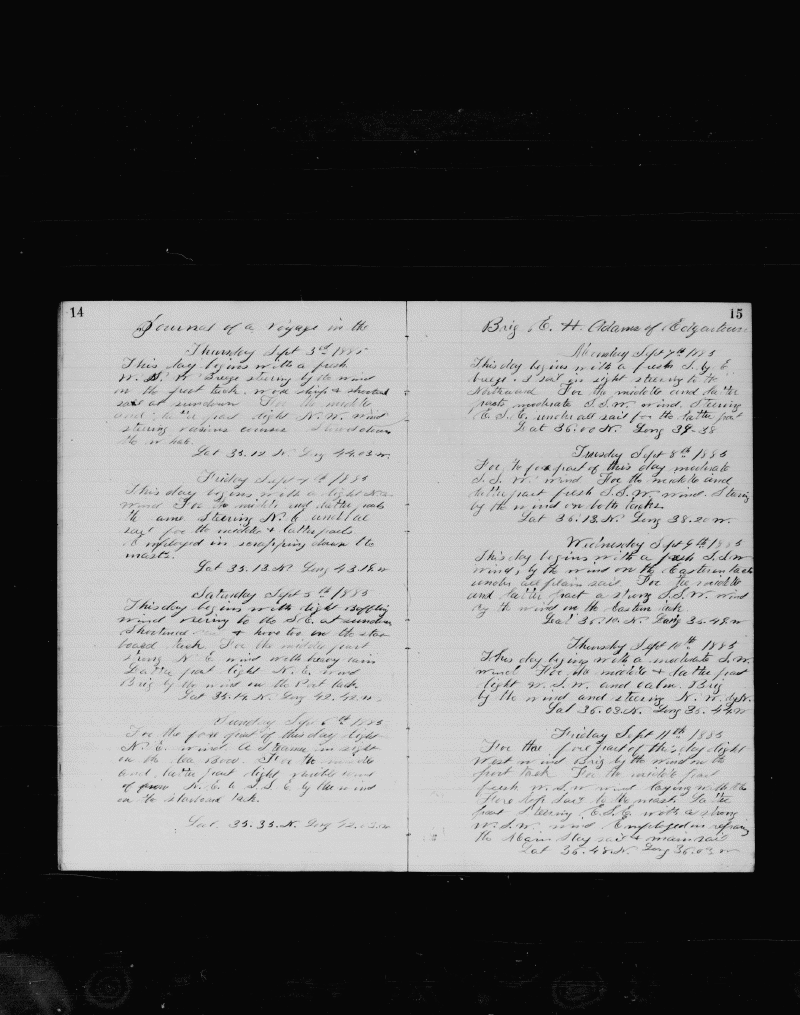 14
Journal of a voyage in the
Thursday Sept 3rd 1885
This day begins with a fresh
W. N. W. Breeze steering by the wind
on the port tack. wore ship & shortend
sail at sundown For the middle
and latter part light N.W. wind
steering various courses
Lat 35.12 N. Long 44.03 W.
Friday Sept 4th 1885
This day begins with a light
wind For the middle and latter parts
the same Steering N. E under all
sail for the middle & latter parts
Employed in scrapping down the
masts.
Lat 35.13 N. Long 43.18 W
Saturday Sept 5th 1885
This day begins with light Baffling
wind steering to the S.E. at sundown
Shortened & hove too on the star
board tack For the middle part
strong N. E wind with heavy rain
Latter part light N. E. wind
Brig by the wind on the Port tack
Lat 35.14 N. Long 42.42 W
Sunday Sept 6th 1885
For the fore part of this day light
N. E. wind. A Steamer in sight
on the lee Bow. For the middle
and latter part light variable wind
from N. E. to S. S. E. by the wind
on the starboard tack.
Lat. 35.35 N. Long 42.
15
Brig E. H. Adams of Edgartown
Monday Sept 7th 1885
This day begins with a fresh S. by E.
breeze. 1 sail in sight steering to the
Northward For the middle and latter
parts moderate S.S.W. wind. Steering
E. S. E. under all sail for the latter part
Lat 36.00 N. Long 39.38
Tuesday Sept 8th 1885
For the fore part of this day moderate
S. S. W. wind For the middle and
latter part fresh S.S.W. wind. Steering
by the wind on both tacks.
Lat 36.13 N. Long 38.20 W.
Wednesday Sept 9th 1885
This day begins with a fresh S.S.W
wind, by the wind on the Eastern tack
under all plain sail. For the middle
and latter part a strong S.S.W. wind
By the wind on the Eastern tack.
Lat 36.10 N. Long 36.48 W
Thursday Sept 10th 1885
This day begins with a moderate S.W.
wind. For the middle & latter part
light W.S.W. and calm. Brig
by the wind and steering N. W. by N.
Lat 36.08 N. Long 35.44 W
Friday Sept 11th 1885
For the fore part of this day light
West wind Brig by the wind on the
port tack For the middle part
fresh W.S.W wind laying with the
Fore top sail to the mast. Latter
part Steering E.S.E. with a strong
W.S.W. wind Employed in repairing
the Main Stay sail & main sail
Lat 36.48 N. Long 36.03 W